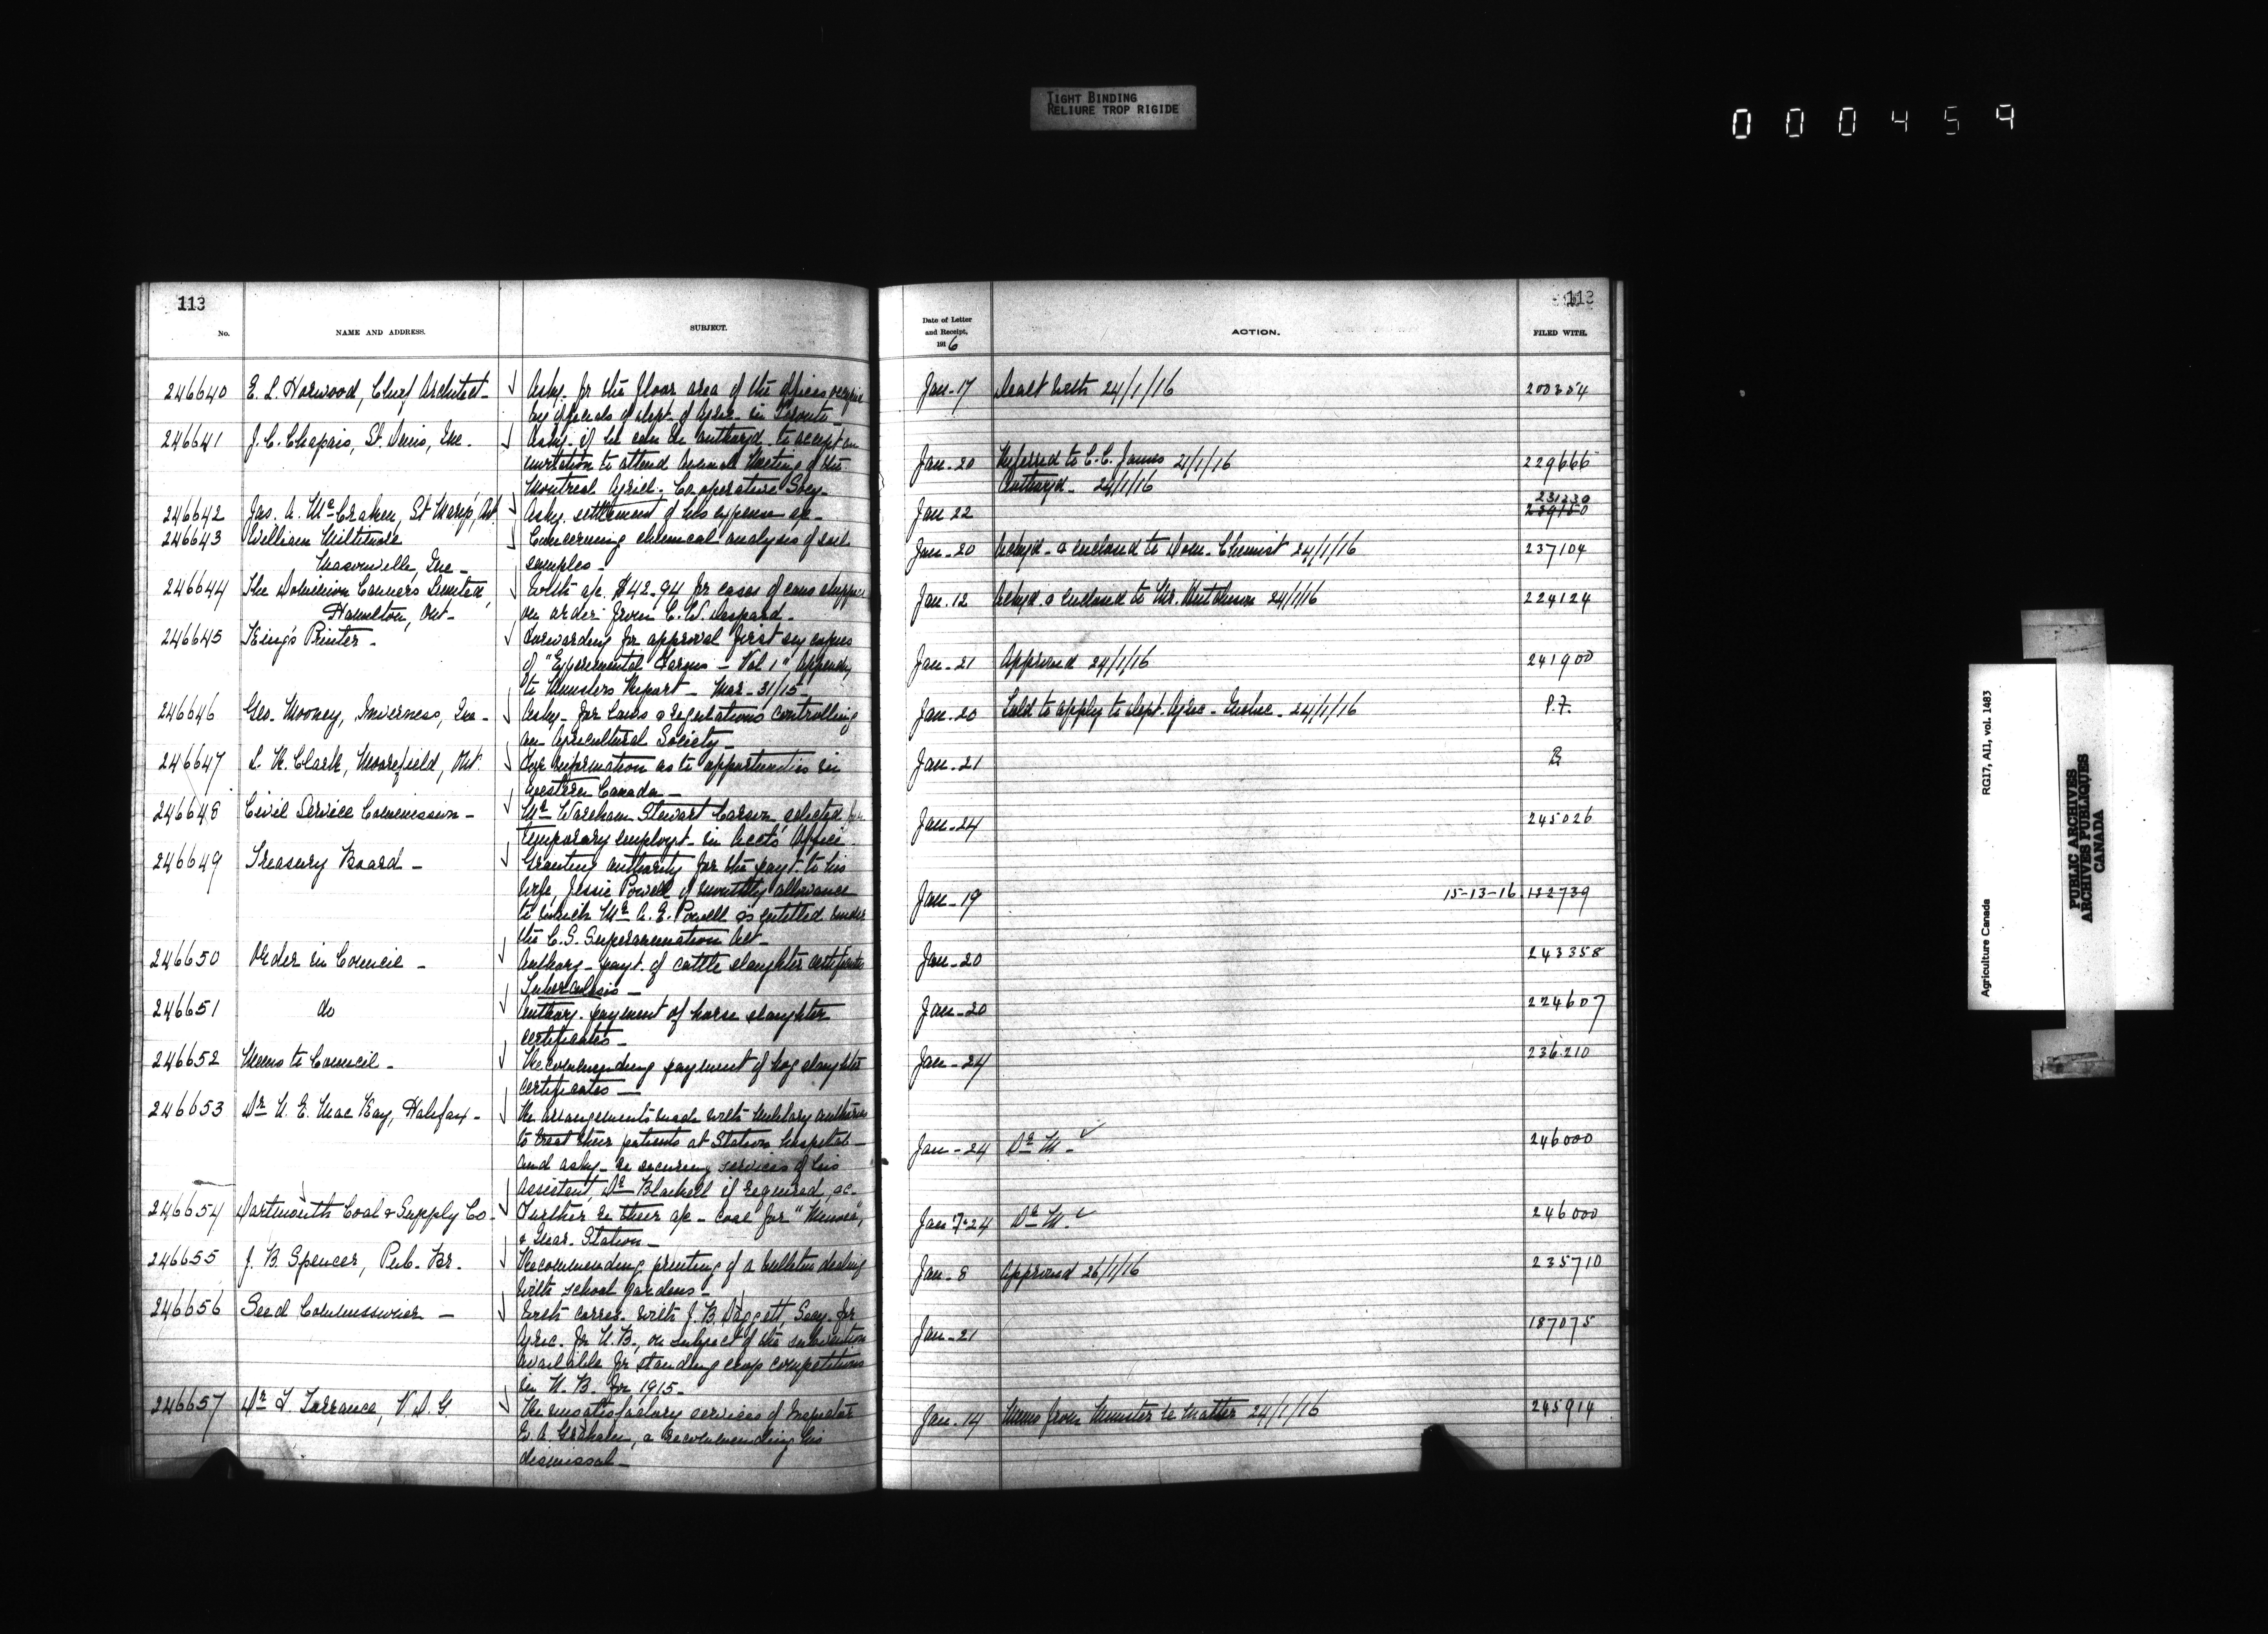 TIGHT BINDING
RELIURE TROP RIGIDE
000459
113
No.
NAME AND ADDRESS.
SUBJECT.
246640 E. L. Horwood, Chief Architect- Askg. for the floor area of the offices
by officials of dept. of Agric. in Toronto-
246641 J. C. Chapais, St. Denis, Que. Askg. if he can be authorzd. to accept an
invitation to attend Annual Meeting of the
Montreal Agricl. Co-operative Socy-
246642 Jas. A. McCraken, St Mary's, Ont. Askg. settlement of his expense ac-
246643 William Concerning chemical analysis of soil
Que- samples-
246644 The Dominion Canners Limited, With ac. $42.94 for cases of cans
Hamilton, Ont- on order from C. W.
246645 King's Printer- Forwarding for approval first copies
of "Experimental Farms - Vol 1" Appendix
to Ministers Report - Mar-31/15-
246646 Geo. Mooney, Inverness, Que- Askg- for laws & regulations controlling
an Agricultural Society-
246647 L. R. Clark, Moorefield, Ont. For information as to opportunities in
Western Canada-
246648 Civil Service Commission- Mr Wareham Stewart Carson selected for
temporary employt. in Acct's Office.
246649 Treasury Board- Granting authority for the payt. to his
wife, Jessie Powell of monthly allowance
to which Mr. A. E. Powell is entitled under
the C.S. Superannuation Act-
246650 Order in Council- Authorg- payt. of cattle slaughter certificates
Tuberculosis-
246651 do Authorg. payment of horse slaughter
certificates-
246652 Memo to Council- Recommending payment of hog slaughter
certificates-
246653 Dr N. E. MacKay, Halifax- Re arrangements made with military authorities
to treat their patients at Station hospital-
and askg- re securing services of his
assistant, Dr if required, ac-
246654 Dartmouth Coal & Supply Co- Further re their ac- coal for
& Quar. Station-
246655 J. B. Spencer, Pub. Br. Recommending printing of a bulletin dealing
with school gardens-
246656 Seed Commissioner- With corres. with J. B. Daggett, Secy. for
Agric. for N. B., on subject of the subvention
available for standing crop competitions
in N. B. for 1915-
246657 Dr F Torrance, V. D. G. Re unsatisfactory services of Inspector
E. A. Graham, & recommending his
dismissal-
113
Date of Letter
and Receipt,
1916
ACTION.
FILED WITH.
Jan-17 Dealt with 24/1/16 200354
Jan-20 Referred to C. C. James 21/1/16 229666
Authorzd- 24/1/16
231230
Jan 22 239150
Jan-20 Ackgd- & enclosed to Dom- Chemist 24/1/16 237104
Jan.12 Ackgd. & enclosed to Mr. Hutchison 24/1/16 224124
Jan-21 Approved 24/1/16 241900
Jan-20 Told to apply to Dept. Agric- Quebec- 24/1/16 P.F.
Jan-21
Jan-24 245026
Jan-19 15-13-16. 122739
Jan-20 243358
Jan-20 224607
Jan-24 236210
Jan-24 Dr M. 246000
Jan 7-24 Dr M. 246000
Jan-8 Approved 26/1/16 235710
Jan-21 187075
Jan-14 Memo from Minister re matter 24/1/16 245914
RG17, AII, vol. 1483
Agriculture Canada
PUBLIC ARCHIVES
ARCHIVES PUBLIQUES
CANADA